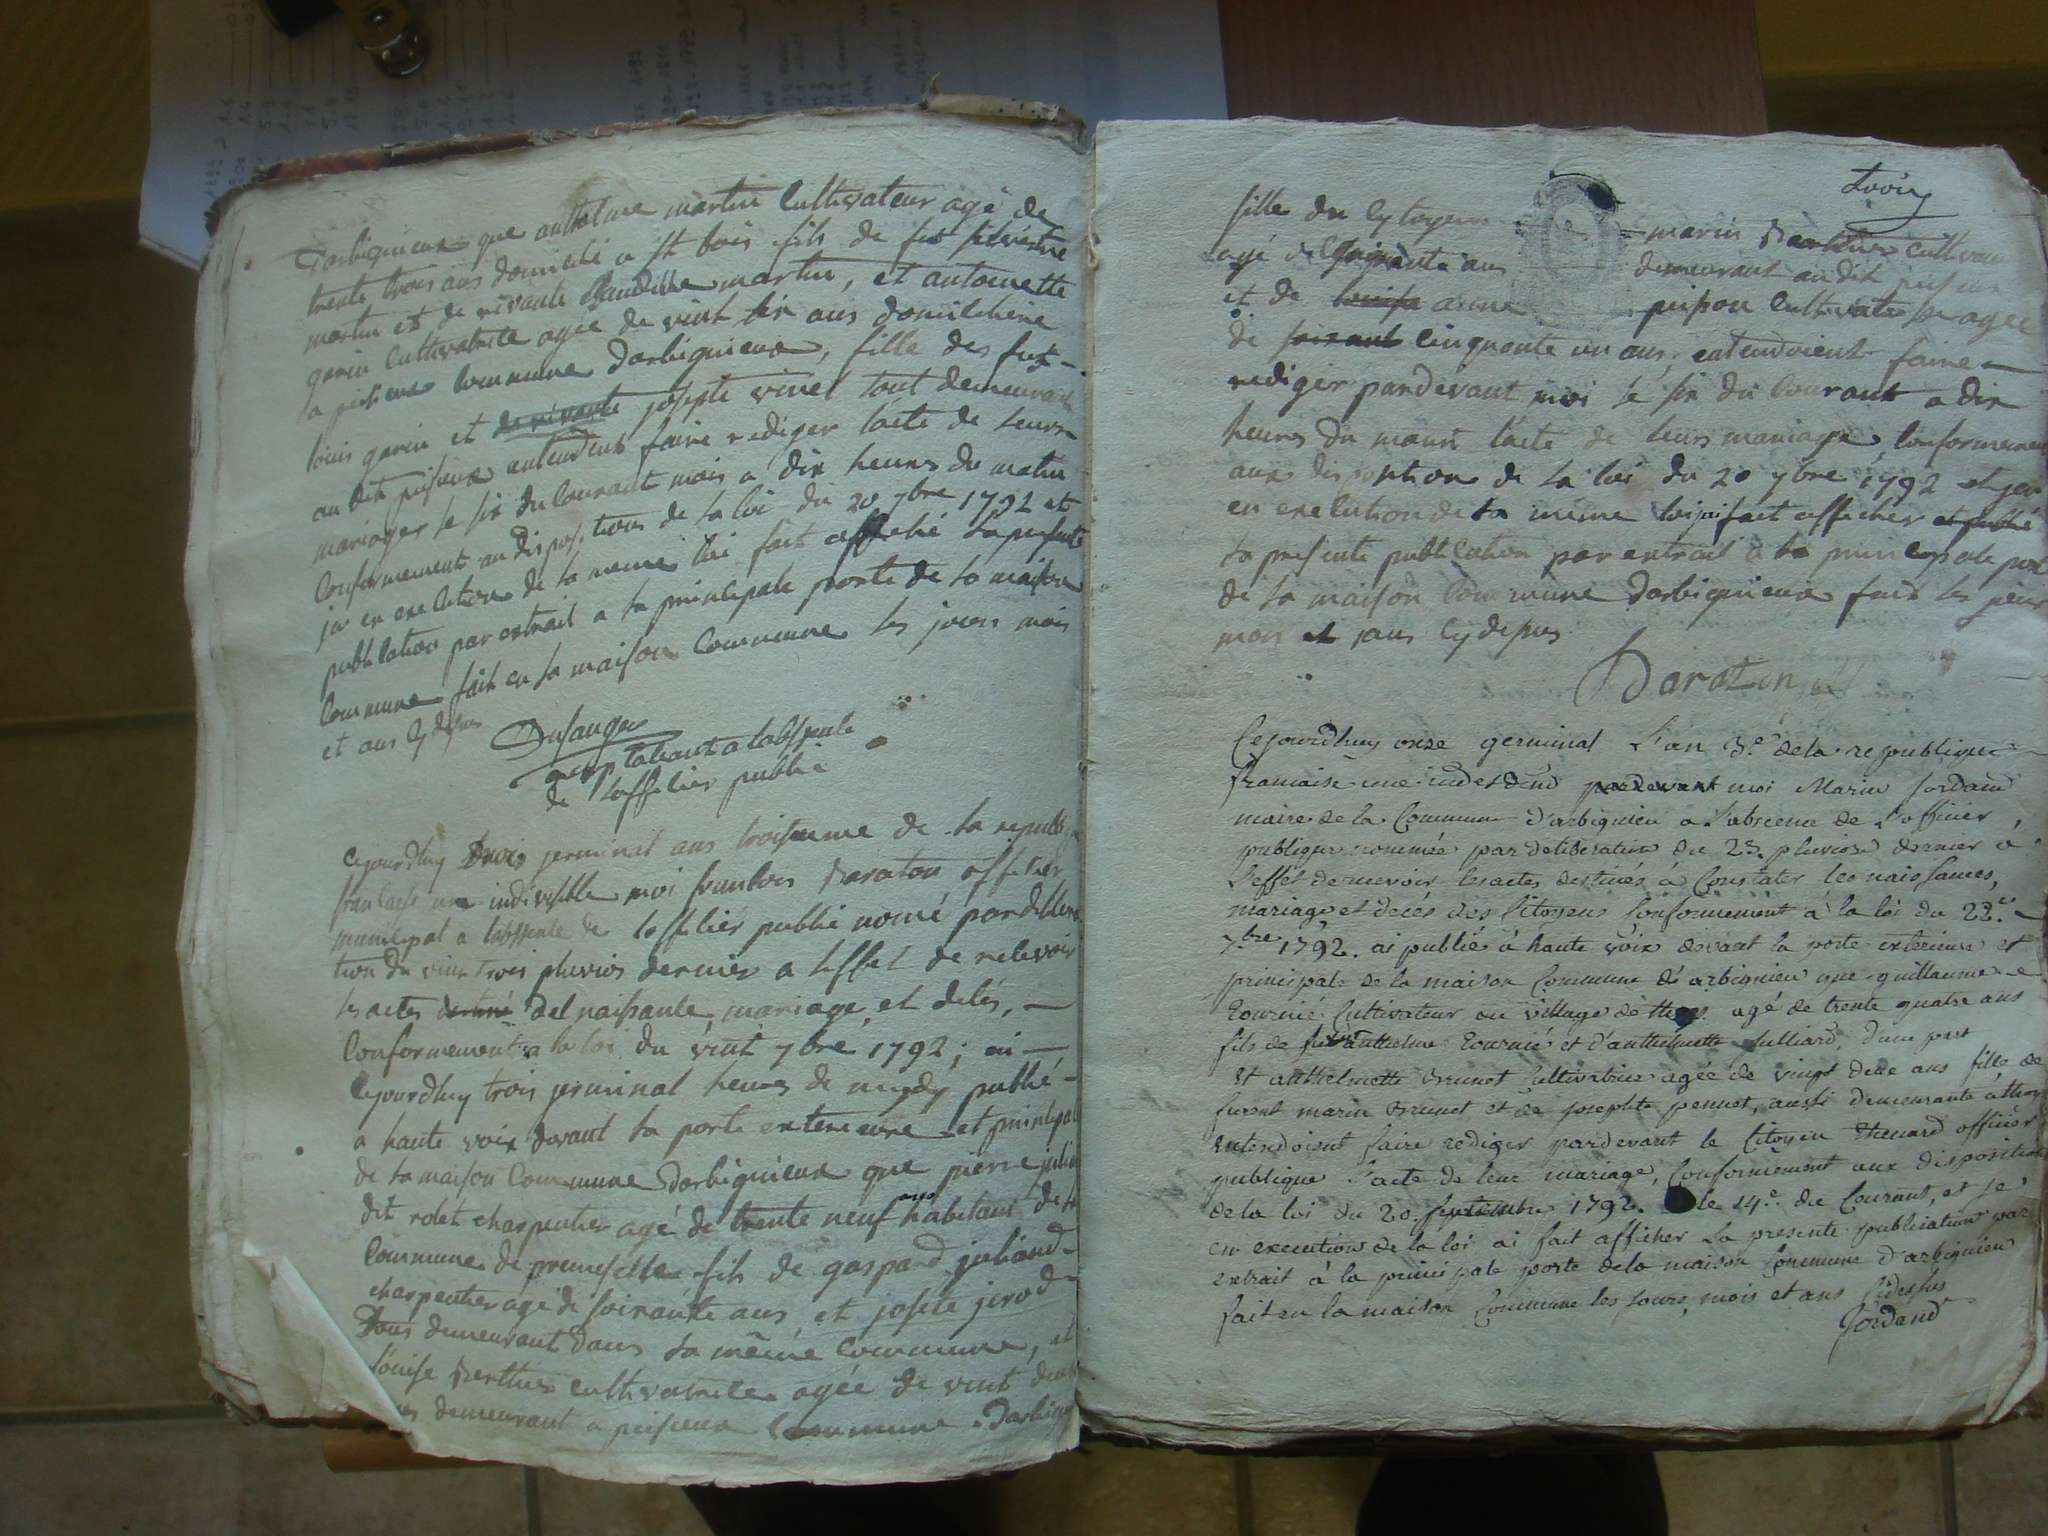 Darbignieux que anthelme martin Cultivateur agé de
trente trois ans domicilié a St bois fils de feu silvestre
martin et de vivante Claudine martin, et antoinette
garin Cultivatrice agée de vint six ans domiciliéne
a peisieux Commune Darbignieux, fille des feux
louis garin et de vivante josepte vinel tout demeurant
au dit peisieux entendent faire rediger lacte de leurs
mariager le six du Courant mois a dix heures du matin
Conformement au dispositions de la loi du 20 7bre 1792 et
jai en execution de la meme loi fait affiché la presente
publication par extrait a la principale porte de la maison
Commune fait en la maison Commune les jours mois
et ans cy desus
Dusauger
acceptabant a labssence
de lofficier public
Cejourdhuy trois jerminal ans troisieme de la republique
francaise une indivisible moi francois Baraton officier
municipal a labssence de lofficier public nomé par delibera
tion du vint trois pluvios dernier a leffet de relevoir
les actes destiné del naissante mariage et décés,
Conformement a la loi du vint 7bre 1792; ai
Cejourdhuy trois jerminal heures de midy publié
a haute voix devant la porte exterieure et principale
de la maison Commune Darbignieux que pierre juliand
dit rolet charpentier agé de trente neuf ans habitant de la
Commune de premeselle fils de gaspard juliand
charpentier agé de soixante ans et josepte jerod
Tous demeurant dans la même Commune, et
louise Berthier cultivatrice agée de vint deux
ans demeurant a peisieux Commune Darbig
fille du Cytoyen marin Berthier cultivateur
agé de soixante ans demeurant au dit peisieux
et de louise anne peisson Cultivatrice agée
de soixant cinquante un ans, entendoient faire
rediger pardevant moi le six du Courant a dix
heures du matin lacte de leurs mariage, Conformement
aux disposition de la loi du 20 7bre 1792 et jai
en execution de la même loi jai fait afficher et publié
la presente publication par extrait a la principale porte
de la maison Commune Darbignieux fait les jour
mois et jans cy desus
Baraton
Cejourdhuy onze germinal l'an 3.e de la republique
francaise une indivisible pardevant moi Marin Jordand
maire de la Commune d'arbignieu a l'absence de l'officier
publique nommée par deliberation du 23. pluviose dernier à
l'effet de recevoir les actes destinés à Constater les naissances,
mariage et decés des Citoyens Conformément à la loi du 22.e
7.bre 1792. ai publié à haute voix devant la porte exterieure et
principale de la maison Commune d'arbignieu que guillaume
Tournié Cultivateur au village de thoys agé de trente quatre ans
fils de feu anthelme Tournié et d'anthelmette Julliard, d'une part
Et anthelmette Brunet Cultivatrice agée de vingt deux ans fille de
furent marin Brunet et de josephte pennet, aussi demeurante à thoys
entendoient faire rediger pardevant le Citoyen Thenard officier
publique l'acte de leur mariage, Conformément aux disposition
de la loi du 20. Septembre 1792. le 14.e du Courant, et je
en execution de la loi ai fait afficher La presente publication par
extrait à la principale porte de la maison Commune d'arbignieu
fait en la maison Commune les jours, mois et ans cidessus
Jordand